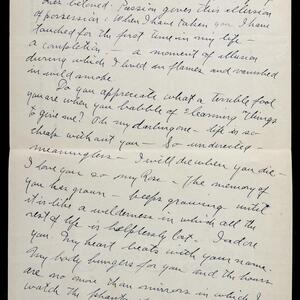 her beloved. Passion gives this illusion
of possession. When I have taken you I have
touched for the first time in my life -
a completion - a moment of illusion
during which I lived in flames and vanished
in wild smoke.
Do you appreciate what a terrible fool
you are when you babble of learning things
to give me? Oh my darling one - life is so
cheap without you - So undirected -
meaningless - I will die when you die -
I love you so my Rose - The memory of
you has grown - keeps growing until
it is like a wilderness in which all the
rest of life is helplessly lost. I adore
you. My heart beats with your name.
My body hungers for you and the hours
are no more than mirrors in which I
watch the